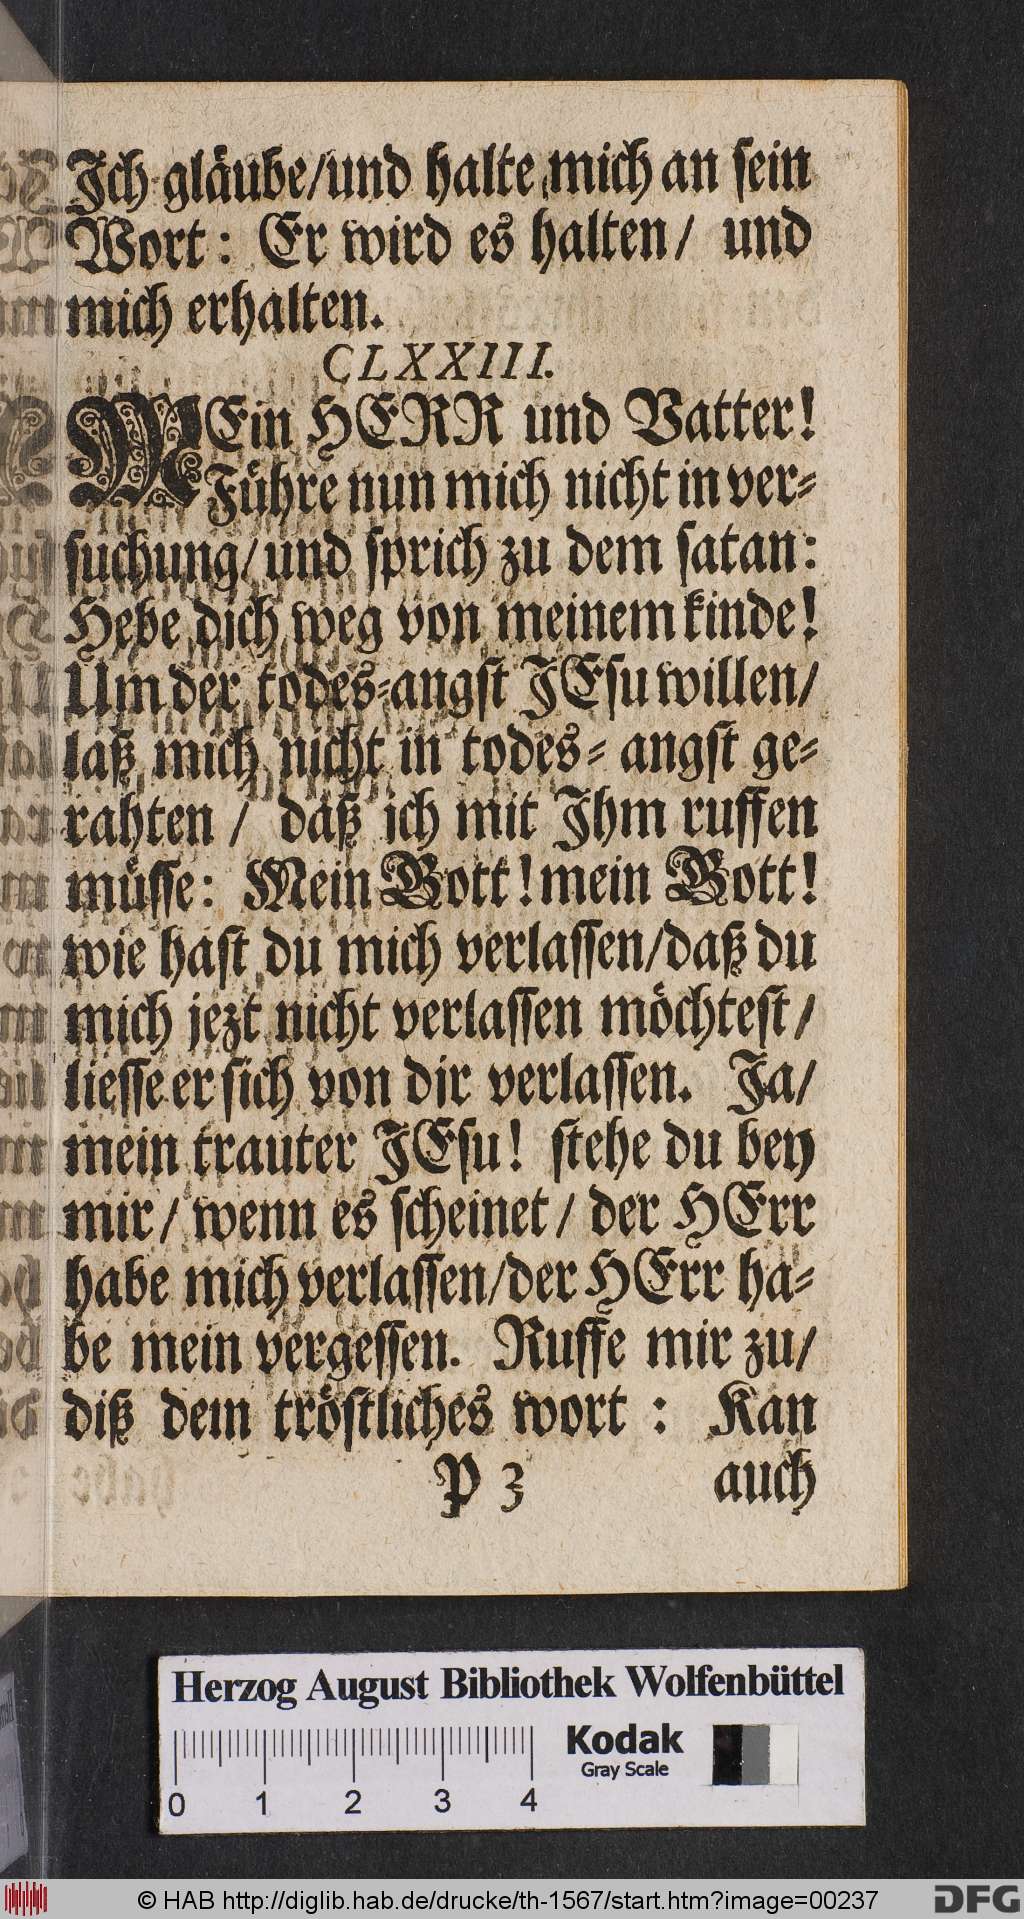 Ich gläube/und halte mich an sein
Wort: Er wird es halten/ und
mich erhalten.
CLXXIII.
MEin HERR und Vatter!
Führe nun mich nicht in ver-
suchung/und sprich zu dem satan:
Hebe dich weg von meinem kinde!
Um der todes-angst JEsu willen/
laß mich nicht in todes-angst ge-
rahten / daß ich mit Ihm ruffen
müsse: Mein Gott! mein Gott!
wie hast du mich verlassen/daß du
mich jezt nicht verlassen möchtest/
liesse er sich von dir verlassen. Ja/
mein trauter JEsu! stehe du bey
mir/ wenn es scheinet/ der HErr
habe mich verlassen/der HErr ha-
be mein vergessen. Ruffe mir zu/
diß dein tröstliches wort : Kan
P 3 auch
Herzog August Bibliothek Wolfenbüttel
Kodak
Gray Scale
0 1 2 3 4
© HAB http://diglib.hab.de/drucke/th-1567/start.htm?image=00237
DFG